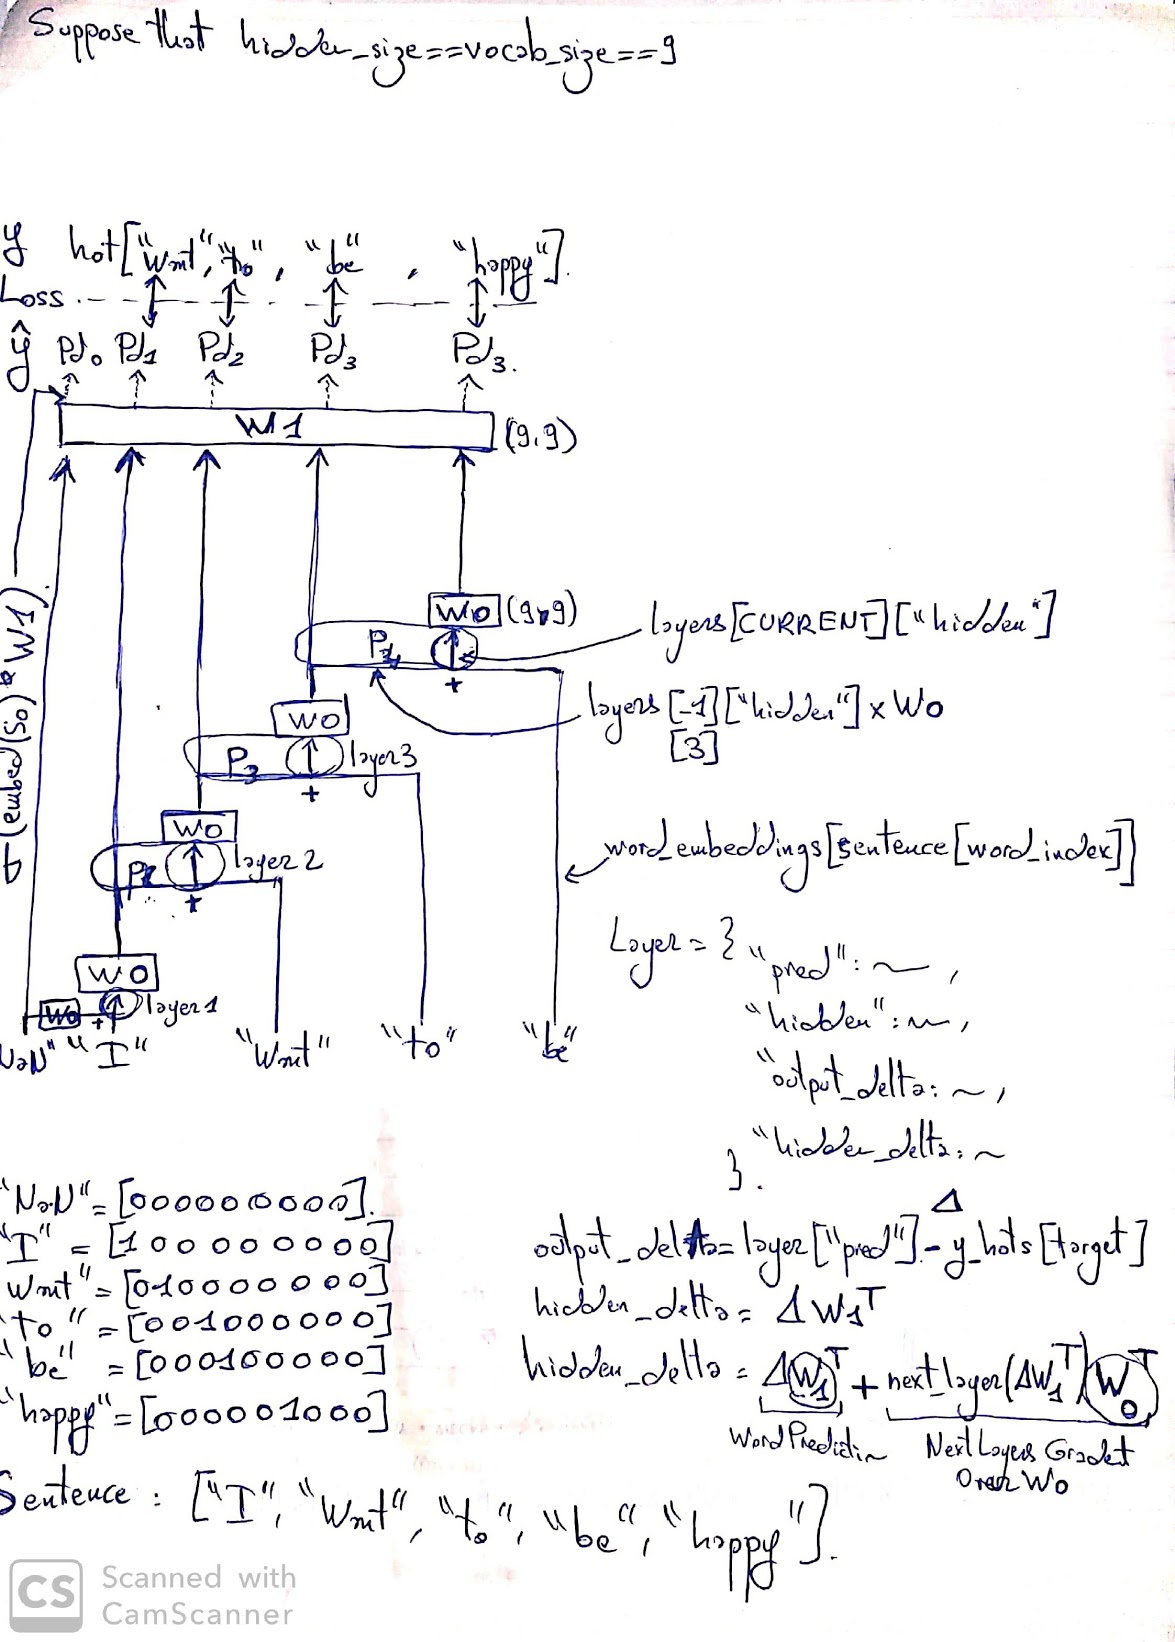 Suppose that hidden_size==vocab_size==9
y hot["Want", "to", "be", "happy"].
Loss
ŷ Pd0 Pd1 Pd2 Pd3 Pd3.
W1 (9,9)
W0 (9,9)
layers[CURRENT]["hidden"]
layers[-1]["hidden"] x W0
[3]
W0
P3 layer3
+
W0
layer 2
+
word_embeddings[sentence[word_index]]
σ(embed(S0) * W1)
W0
W0 + layer 1
NaN" "I" "Want" "to" "be"
Layer = { "pred": ~ ,
"hidden": ~ ,
"output_delta: ~ ,
"hidden_delta: ~
}.
"NaN" = [0000000000].
"I" = [100000000]
Want" = [010000000]
"to" = [001000000]
"be" = [000100000]
"happy" = [000001000]
Δ
output_delta= layer["pred"]- y_hots[target]
hidden_delta= ΔW1T
hidden_delta = ΔW1T + next_layer(ΔW1T)W0T
Word Prediction Next Layers Gradient
Over W0
Sentence : ["I", "Want", "to", "be", "happy"].
CS Scanned with
CamScanner